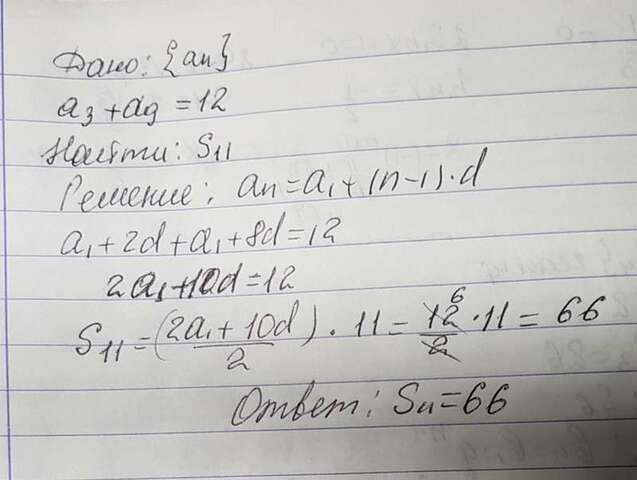 Дано: {an}
a₃ + a₉ = 12
Найти: S₁₁
Решение: an = a₁ + (n-1)·d
a₁ + 2d + a₁ + 8d = 12
2a₁ + 10d = 12
S₁₁ = (2a₁ + 10d)/2 · 11 = 12/2 · 11 = 66
6
Ответ: S₁₁ = 66